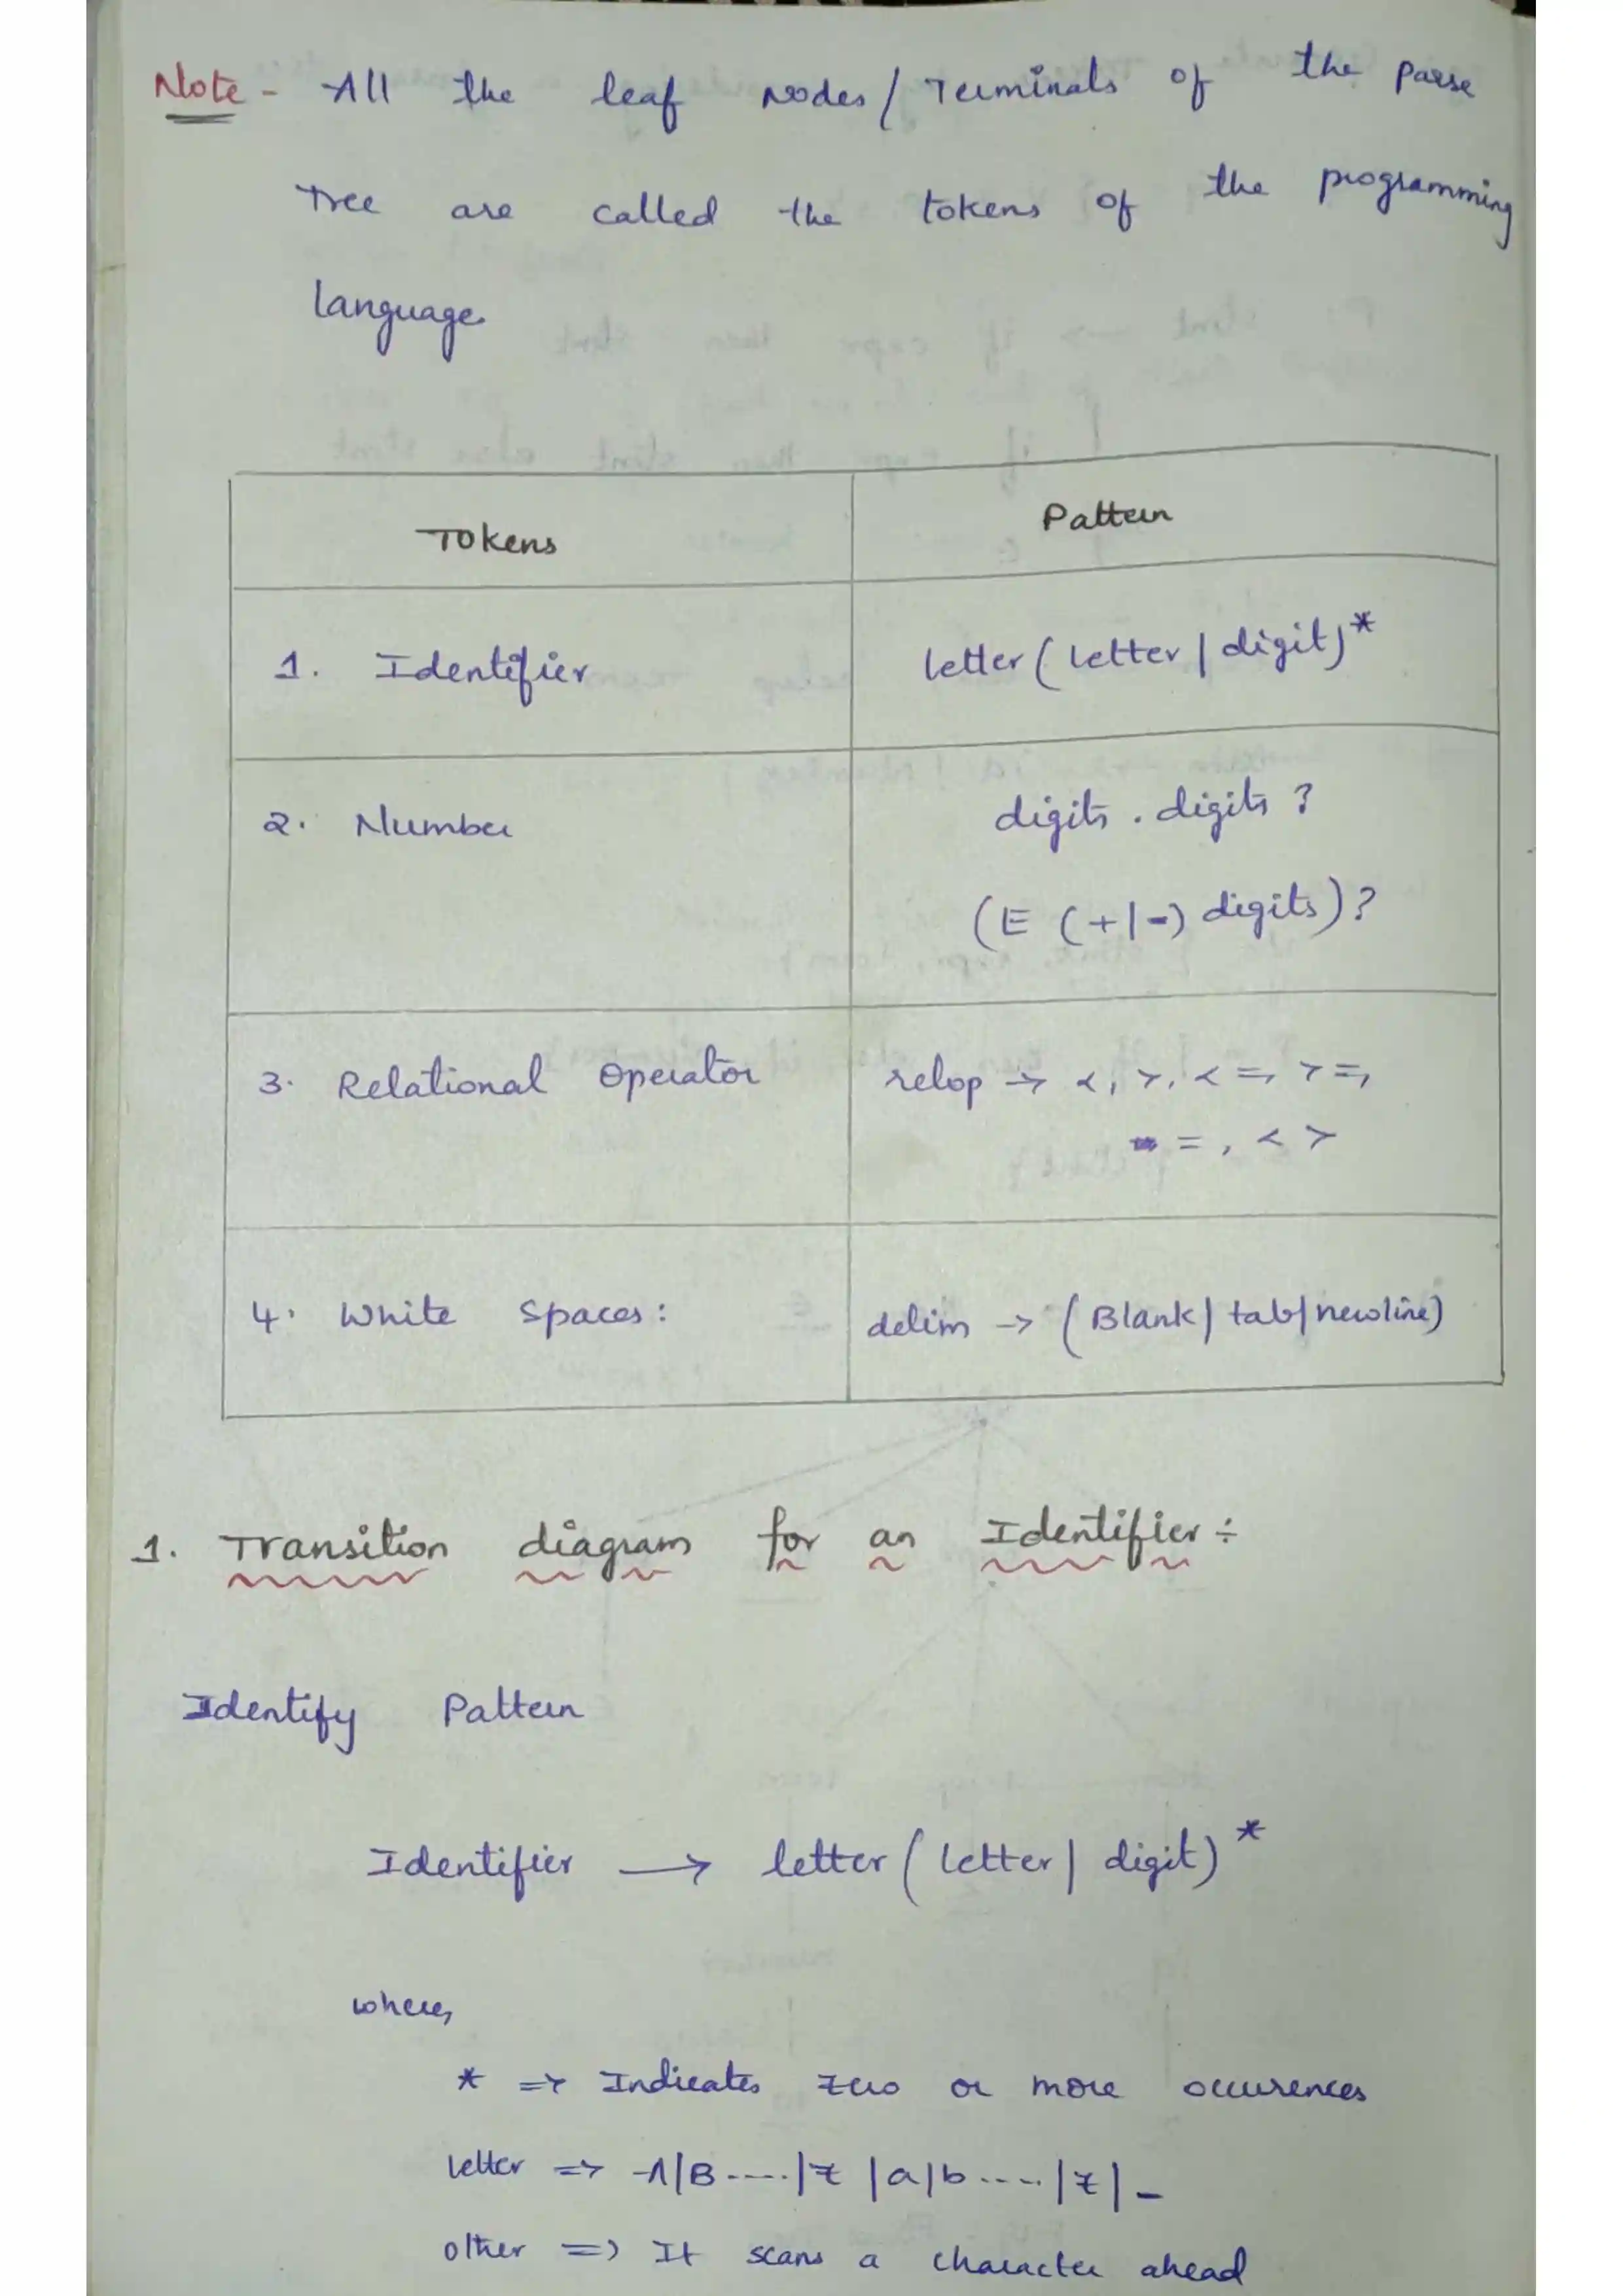 Note - All the leaf nodes / Terminals of the parse
Tree are called the tokens of the programming
language.
Tokens Pattern
1. Identifier letter ( letter | digit)*
2. Number digits . digits ?
(E (+|-) digits)?
3. Relational Operator relop → <, >, <=, >=,
=, < >
4. White Spaces: delim → ( Blank | tab | newline)
1. Transition diagram for an Identifier ÷
Identify Pattern
Identifier → letter ( letter | digit) *
where,
* => Indicates zero or more occurences
letter => A|B-----|Z |a|b-----|z| _
other => It scans a character ahead